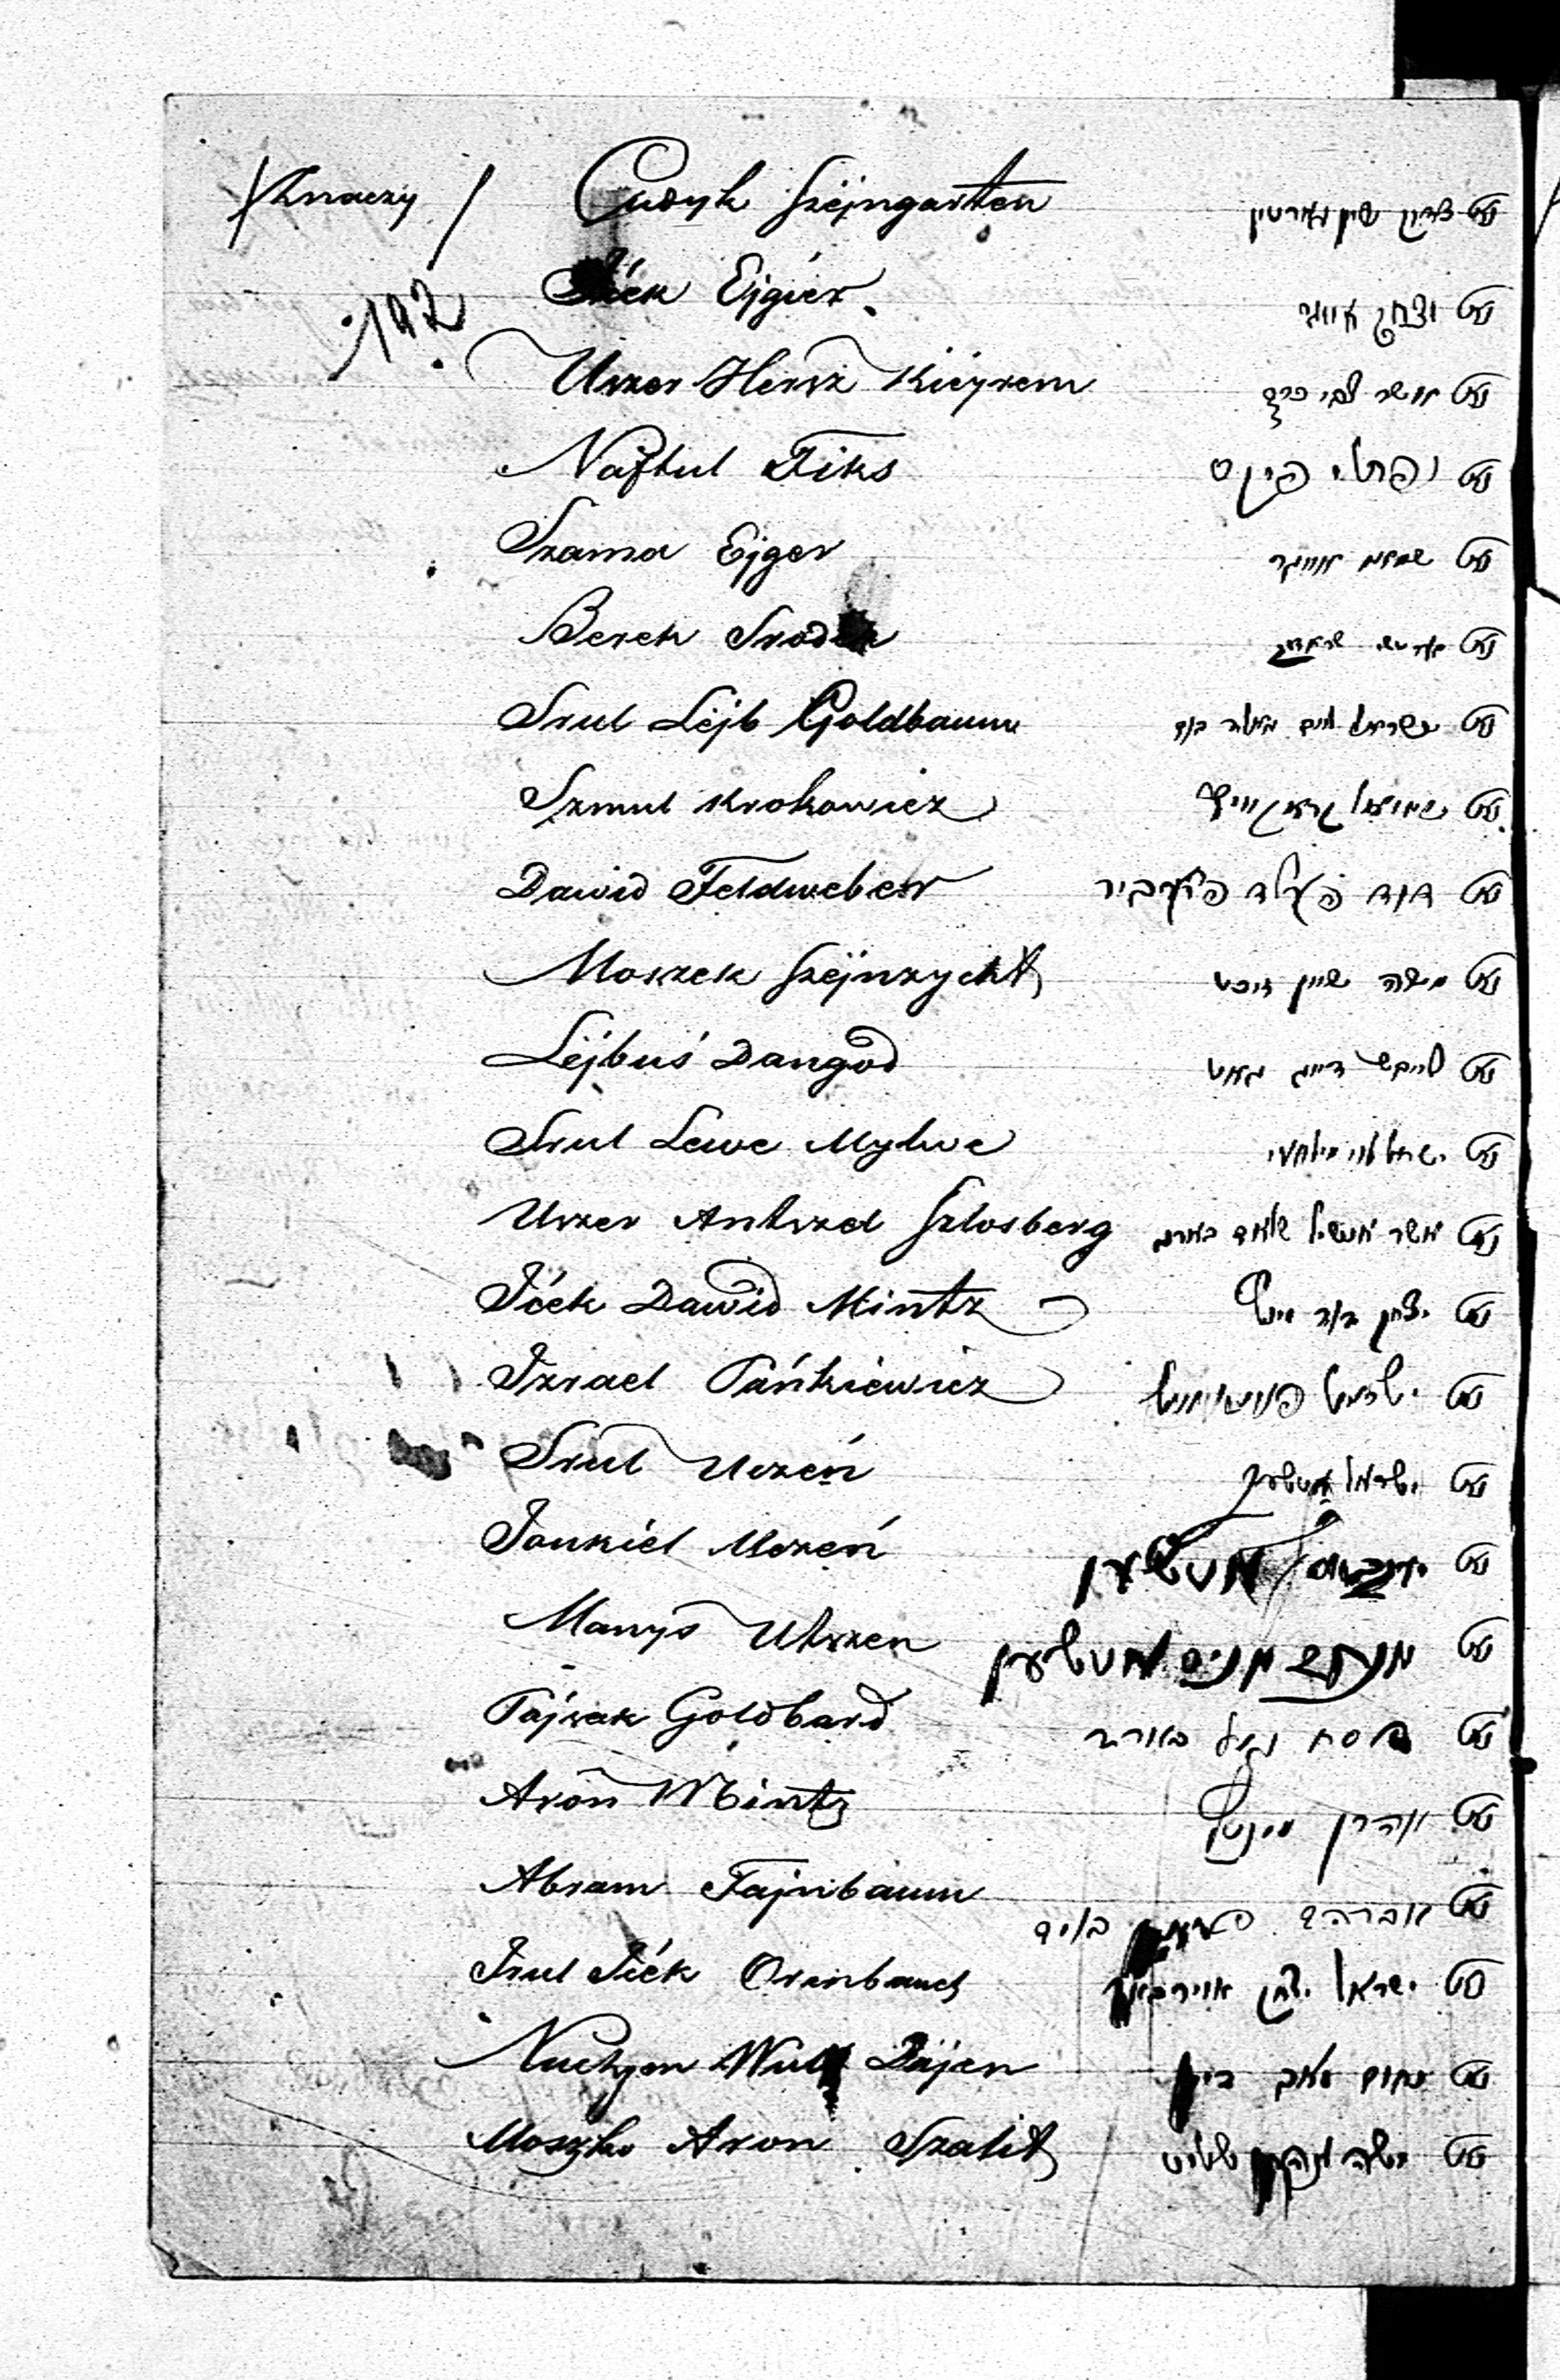 /Znaczy/ Cudyk Szejngarten
Icek Ejgier נאם יצחק אייגר
192
Uszer Hersz Kieyrem נאם אשר צבי
Naftul Fiks נאם נפתלי פיקס
Szama Ejger נאם שמאי אייגר
Berek Srodek נאם
Srul Lejb Goldbaum נאם ישראל לייב גאלד בוים
Szmul Krokowicz נאם שמואל קראקאוויץ
Dawid Feldweber נאם דוד פעלד
Moszek Szejnzycht נאם משה שיין זיכט
Lejbuś Dangod נאם לייבש דיין גאט
Srul Lewe Mylwe נאם ישראל לוי
Uszer Antszel Szlosberg נאם אשר אנשיל שלאס בארג
Icek Dawid Mintz נאם יצחק דוד מינץ
Izrael Pańkiewicz נאם ישראל
Srul Uczeń נאם ישראל אוטשען
Jankiel Uczeń נאם אוטשען
Manys Utszen נאם מנחם מניס אוטשען
Pajsak Goldbard נאם פסח גאלד בארד
Aron Mintz נאם אהרן מינץ
Abram Fajnbaum נאם אברהם פיין בוים
Srul Icek Orenbauch נאם ישראל יצחק
Nuchym Wulf Dajen נאם נחום וואלף דיין
Moszko Aron Szalit נאם משה אהרן שליט